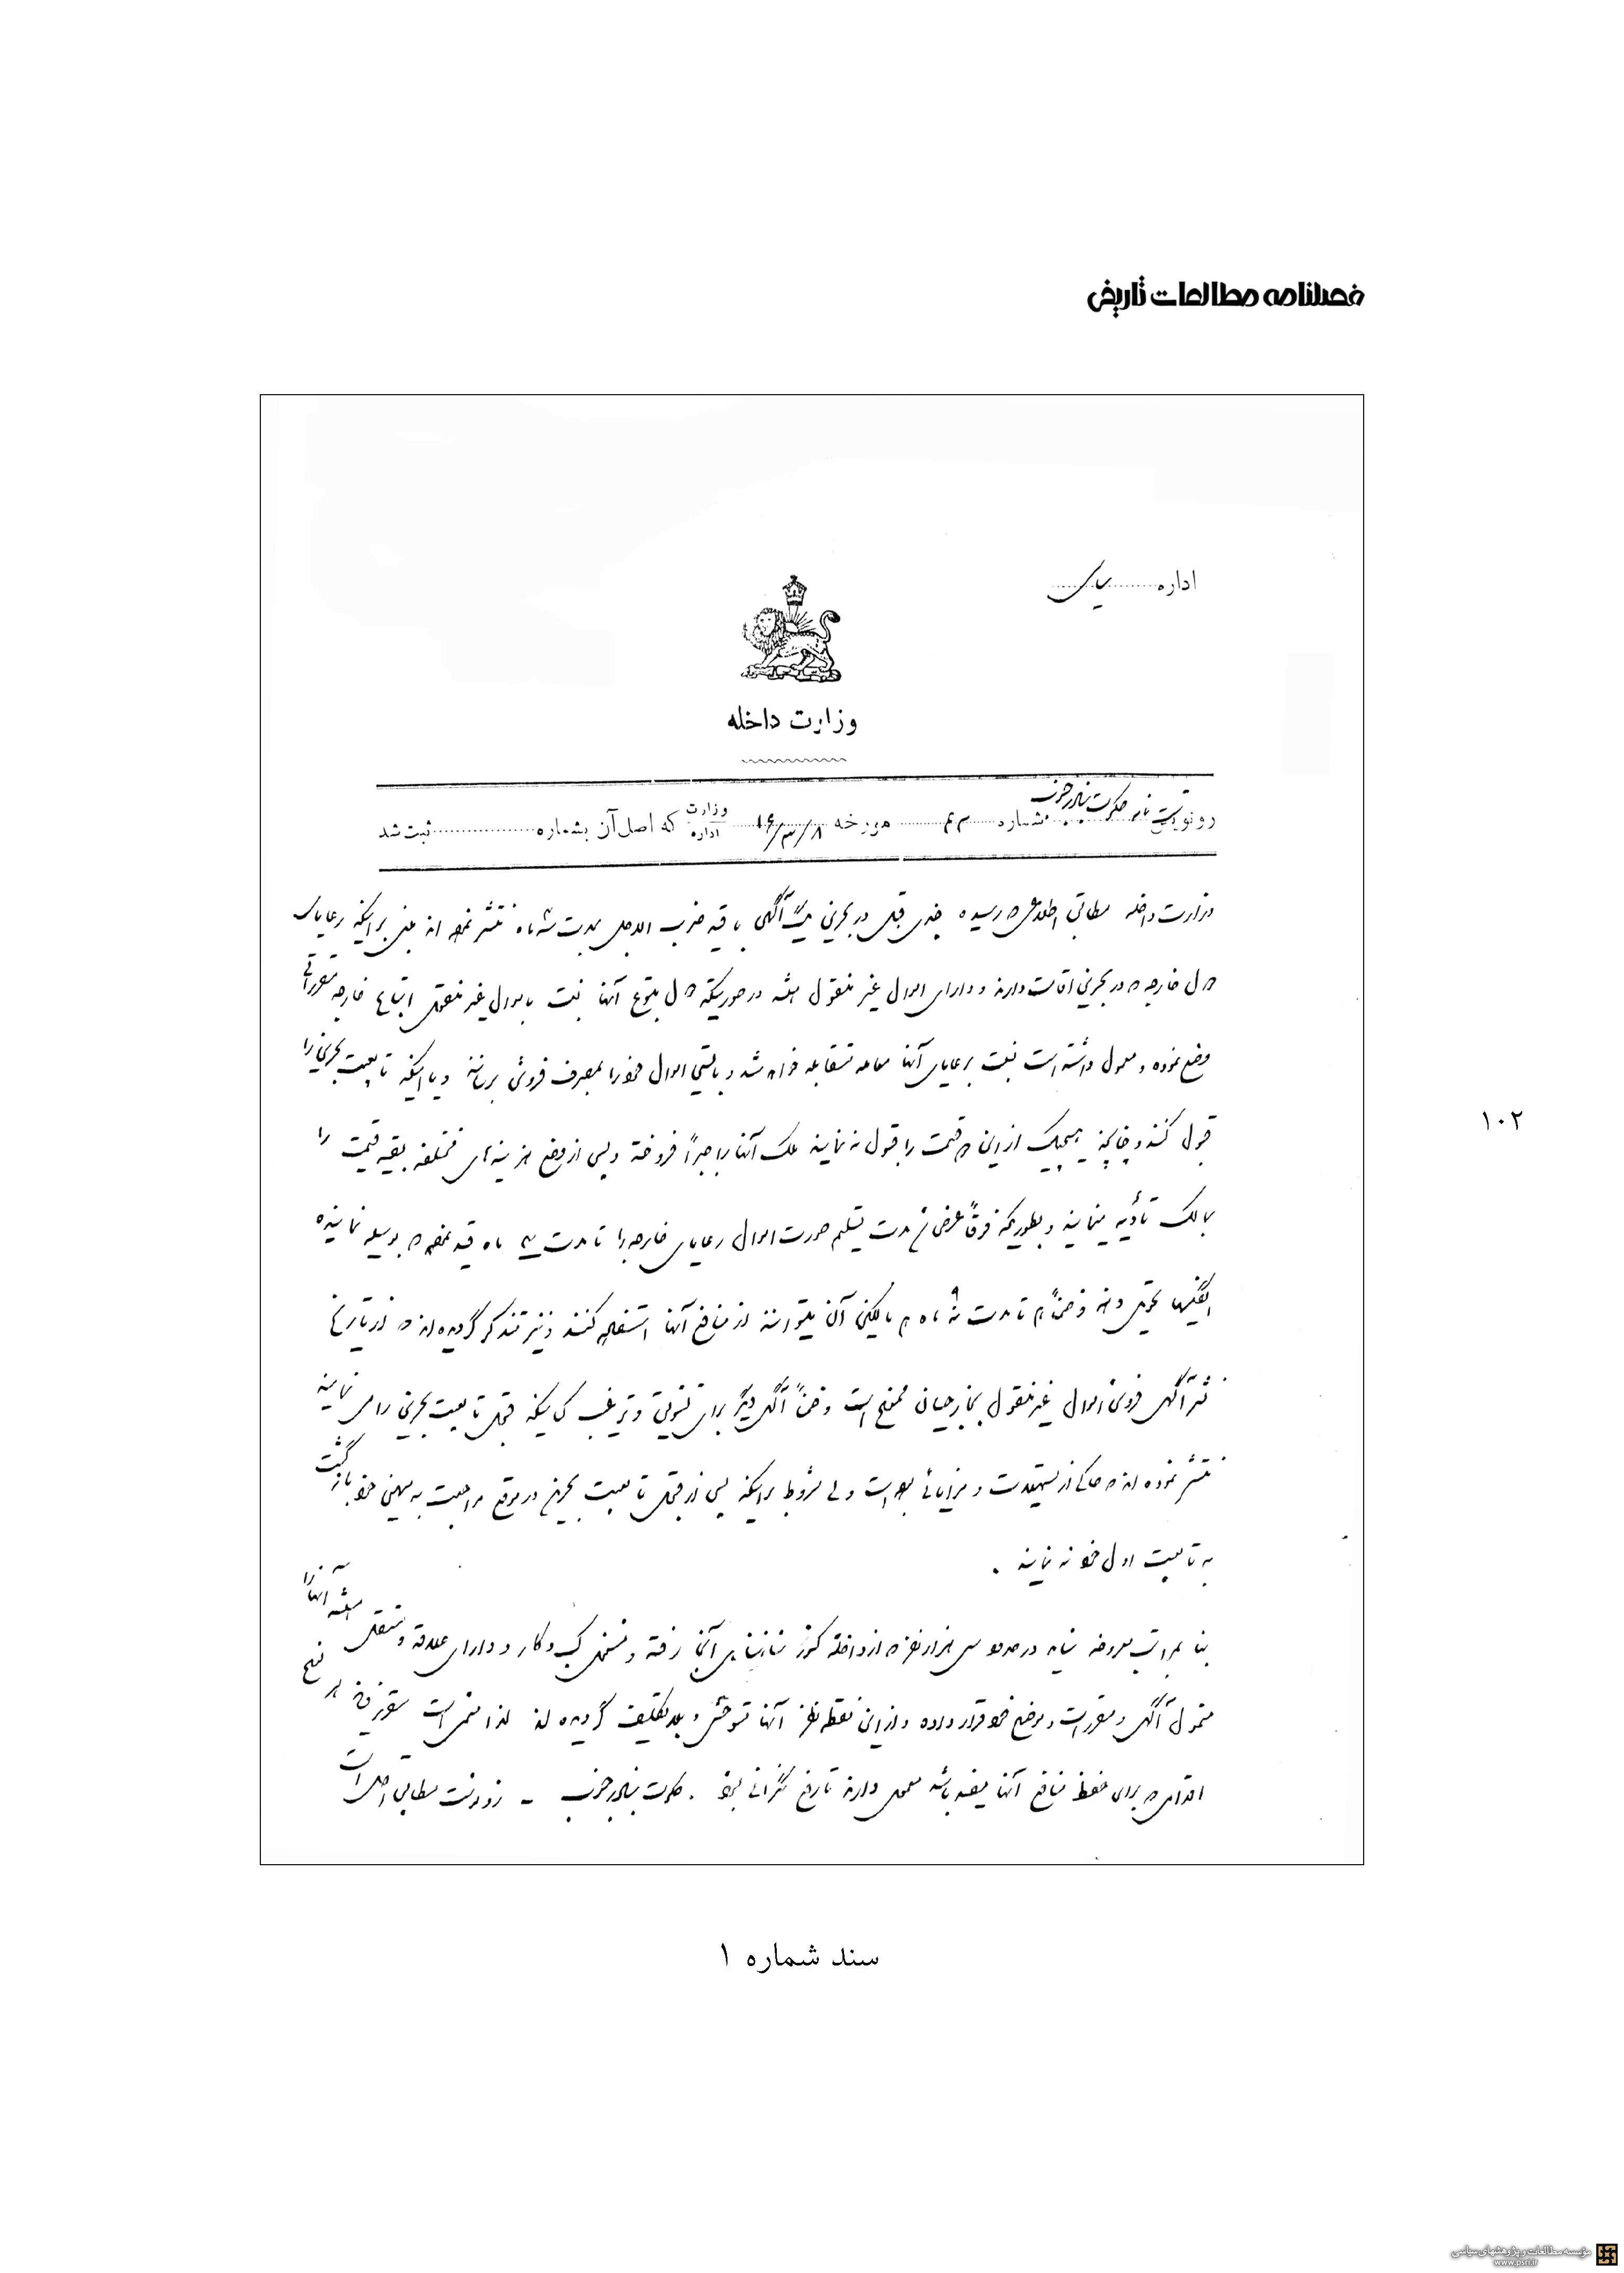 فصلنامه مطالعات تاریخی
اداره سیاسی
وزارت داخله
رونوشت نامه حکومت بنادر جنوب شماره مورخه ۱۶/۳/۸ وزارت اداره که اصل آن بشماره ثبت شد
وزارت داخله مطابق اطلاعی که رسیده چندی قبل در بحرین یک آگهی با قید ضرب الاجل بمدت شش ماه منتشر نموده اند مبنی بر اینکه رعایای
دول خارجه که در بحرین اقامت دارند و دارای اموال غیر منقول باشند در صورتیکه دول متبوع آنها نسبت باموال غیر منقول اتباع خارجه مقرراتی
وضع نموده و معمول داشته است نسبت برعایای آنها معامله متقابله خواهد شد و بایستی اموال خود را بمصرف فروش برسانند و یا اینکه تابعیت بحرین را
قبول کنند و چنانچه هیچیک از این دو قسمت را قبول نه نمایند ملک آنها را جبراً فروخته و پس از وضع هزینه های مختلفه بقیه قیمت را
بمالک تأدیه مینمایند و بطوریکه فوقاً عرض شد مدت تسلیم صورت اموال رعایای خارجه را تا مدت ماه قید نموده که بوسیله نماینده
انگلیس تحویل دهند و ضمناً هم تا مدت ماه مالکین آن میتوانند از منافع آنها استفاده کنند و نیز متذکر گردیده اند که از تاریخ
نشر آگهی فروش اموال غیر منقول بخارجیان ممنوع است و ضمناً آگهی دیگر برای تشویق و ترغیب کسانیکه قبول تابعیت بحرین را می نمایند
منتشر نموده اند که حاکی از تسهیلات و مزایائی بوده است ولی مشروط بر اینکه پس از قبول تابعیت بحرین در موقع مراجعت به میهن خود بازگشت
به تابعیت اول خود نه نمایند .
بنا بمراتب معروضه بیش در حدود سی هزار نفر که از داخله کشور بآنجا رفته و مشغول کسب و کار و دارای علاقه و مستقل هستند آنها را
مشمول آگهی و مقررات موضوع خود قرار داده و از این نقطه نظر آنها متوحش و بلاتکلیف گردیده اند لذا متمنی است مقرر فرمایند هر نوع
اقدامی که برای حفظ منافع آنها مفید باشد معمول دارند تا رفع نگرانی بشود . حکومت بنادر جنوب - رونوشت مطابق اصل است
۱۰۲
سند شماره ۱
مؤسسه مطالعات و پژوهشهای سیاسی
www.psri.ir